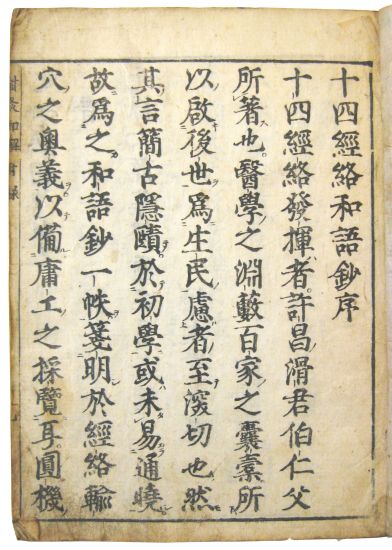 十四經絡和語鈔序
十四經絡發揮者許昌滑君伯仁父
所著也醫學之淵藪百家之囊橐所
以啟後世爲生民慮者至深切也然
其言簡古隱賾於初學或未易通曉
故爲之和語鈔一帙箋明於經絡輸
穴之奧義以備庸工之採覽耳圓機